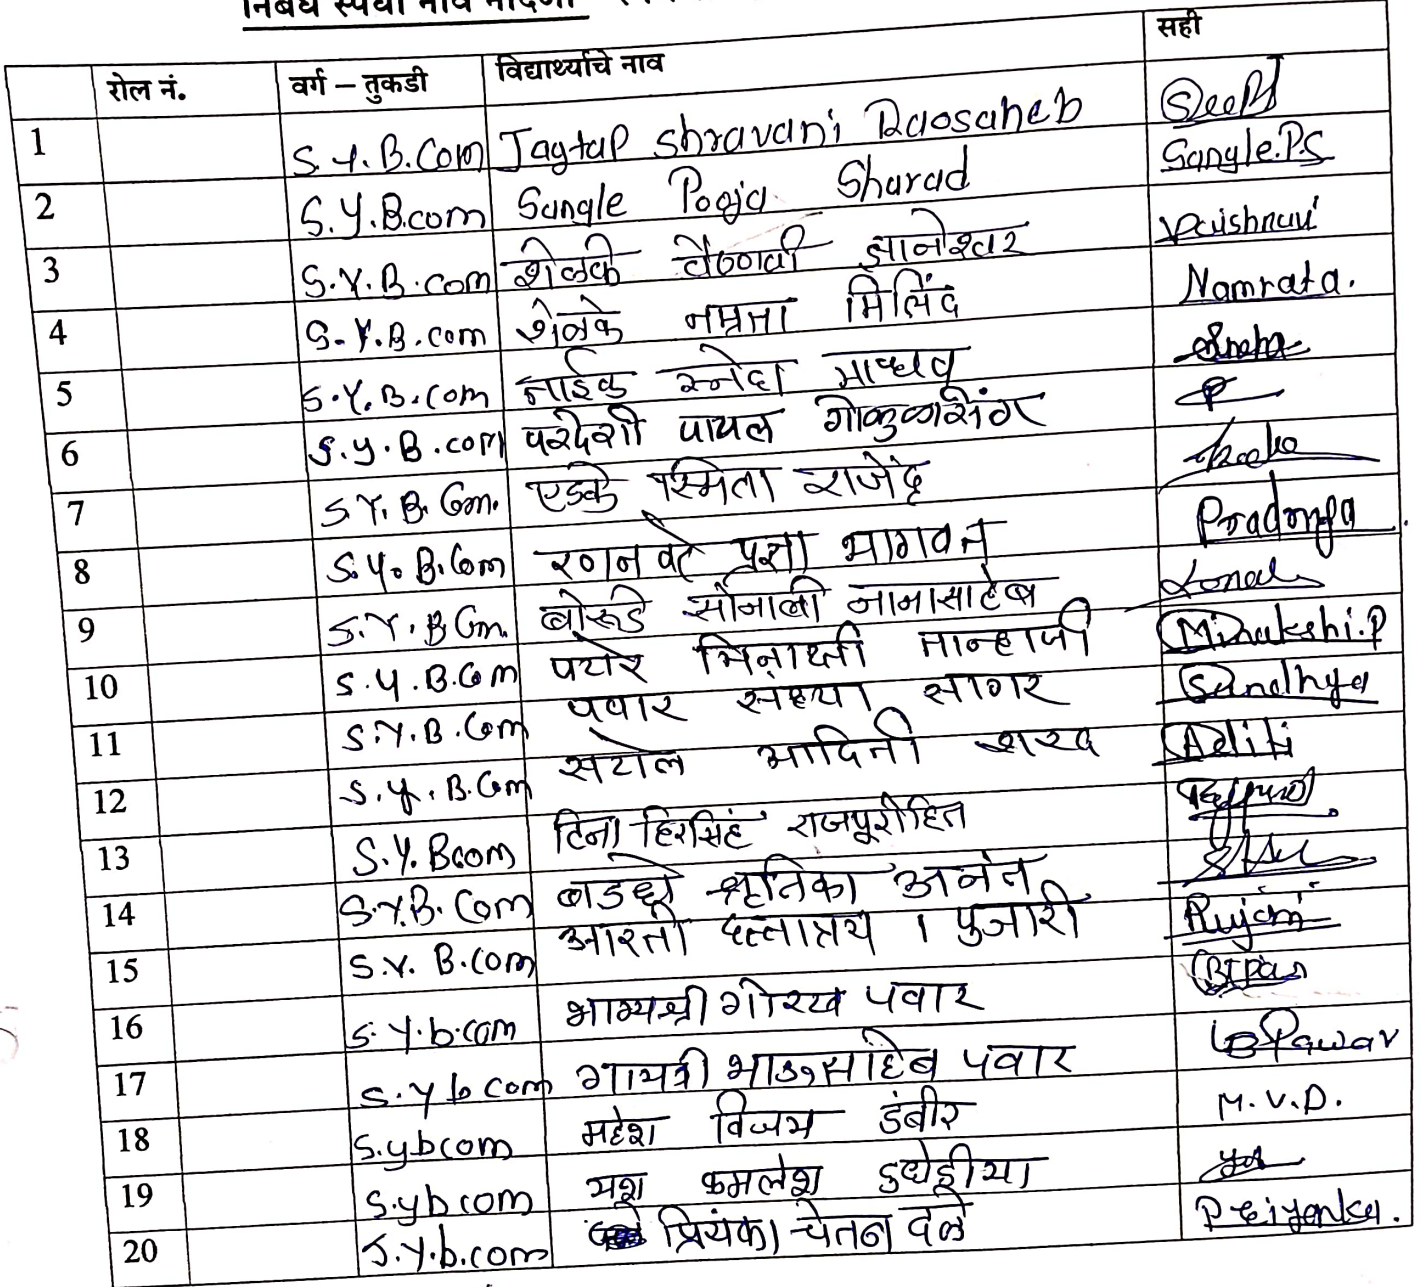 निबंध स्पर्धा नाव नोंदणी
रोल नं. वर्ग – तुकडी विद्यार्थ्याचे नाव सही
1 S.Y.B.Com Jagtap Shravani Raosaheb
2 S.Y.B.com Sangle Pooja Sharad Sangle.P.S
3 S.Y.B.com शेळके वैष्णवी ज्ञानेश्वर Vaishnavi
4 S.Y.B.com शेळके नम्रता मिलिंद Namrata.
5 S.Y.B.com नाईक स्नेहा माधव Sneha
6 S.Y.B.com परदेशी पायल गोकुळसिंग P
7 S.Y.B.Com. एडके स्मिता राजेंद्र
8 S.Y.B.Com रणनवरे प्रज्ञा भागवत Pradnya
9 S.Y.B Com. बोरुडे सोनाली नानासाहेब Sonali
10 S.Y.B.Com पटारे मिनाक्षी तान्हाजी Minakshi.P
11 S.Y.B.Com पवार संध्या सागर Sandhya
12 S.Y.B.Com सटाले आदिती शरद Aditi
13 S.Y.Bcom टिना हिरसिंह राजपूरोहित
14 S.Y.B.Com श्रृतिका अनंत
15 S.Y.B.com आरती दत्तात्रय पुजारी Pujari
16 S.Y.b.com भाग्यश्री गोरख पवार
17 S.Y b com गायत्री भाऊसाहेब पवार Pawar
18 S.ybcom महेश विजय डंबीर M.V.D.
19 S.yb com यश कमलेश
20 S.Y.b.com प्रियंका चेतन देले Priyanka.